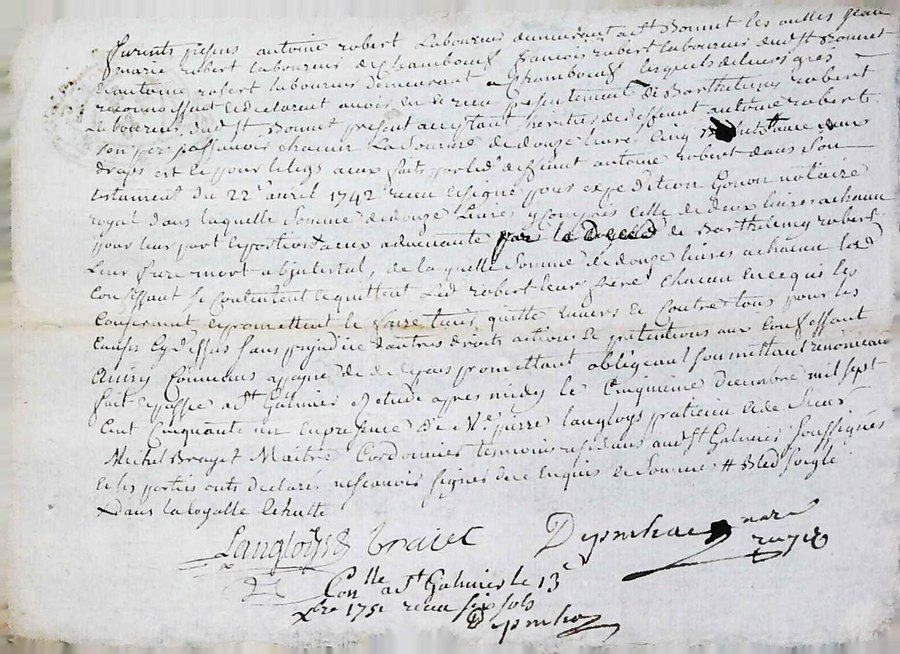 furents presens antoine robert Laboureur demeurant a St Bonnet les oulles jean
marie robert laboureur de Chambœuf francois robert laboureur dud St Bonnet
et antoine robert laboureur demeurant a Chambœuf lesquels de leurs gres
reconnoissent et declarent avoir eu et receu presentement de Barthelemy robert
Laboureur dud St Bonnet present acceptant heritier de deffunt antoine robert
son pere scavoir chacun La somme de douze livres Cinq
draps et ce pour le legs a eux faits par led deffunt antoine robert dans son
testament du 22e avril 1742 receu et signé pour expedition Gonon notaire
royal dans laquelle somme de douze Livres y compris celle de deux livres a chacun
pour leur part et portion a eux advenante par le deced de Barthelemy robert
Leur frere mort abjntestat, de laquelle somme de douze livres a chacun les d
Confessant se contentent et quittent Led robert leur frere chacun en ce qui les
Concernent et promettent le faire tenir quitte envers et Contre tous pour les
Causes cy dessus sans prejudice d'autres droits actions et pretentions aux Confessant
Ainsy Convenus a peyne de depens promettant obligeant soumettant renonceant
fait et passé a St Galmier et etude apres midy le Cinquieme Decembre mil sept
Cent Cinquante un en presence de Me pierre langloys praticien et de sieur
Michel Brayet Maitre Cordonnier temoins residans aud St Galmier soussignés
et les parties onts declarés ne scavoir signer de ce enquis et sommé # Bled soigle
dans la
Langloys Braiet
Conlle a St Galmier le 13e
Xbre 1751 receu six sols